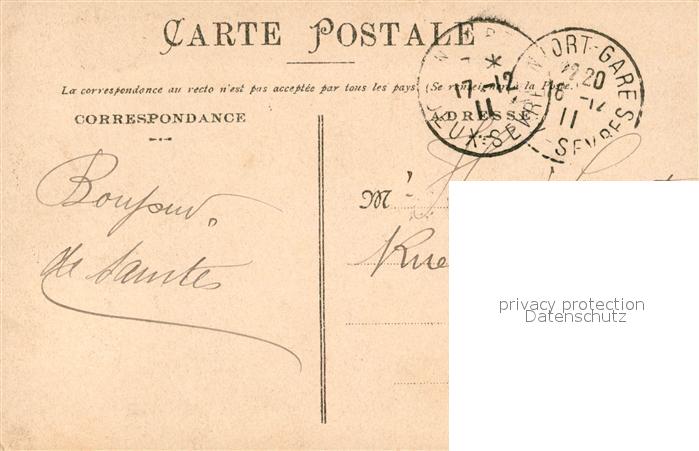 CARTE POSTALE
La correspondance au recto n'est pas acceptée par tous les pays (Se renseigner à la Poste.)
CORRESPONDANCE
ADRESSE
NIORT-GARE
17-12
11
DEUX-SEVRES
NIORT-GARE
12 20
16-12
11
SEVRES
Bonjour
de Saintes
M
Rue
privacy protection
Datenschutz